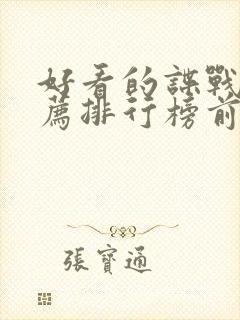 好看的諜戰
薦排行榜前
張寶通